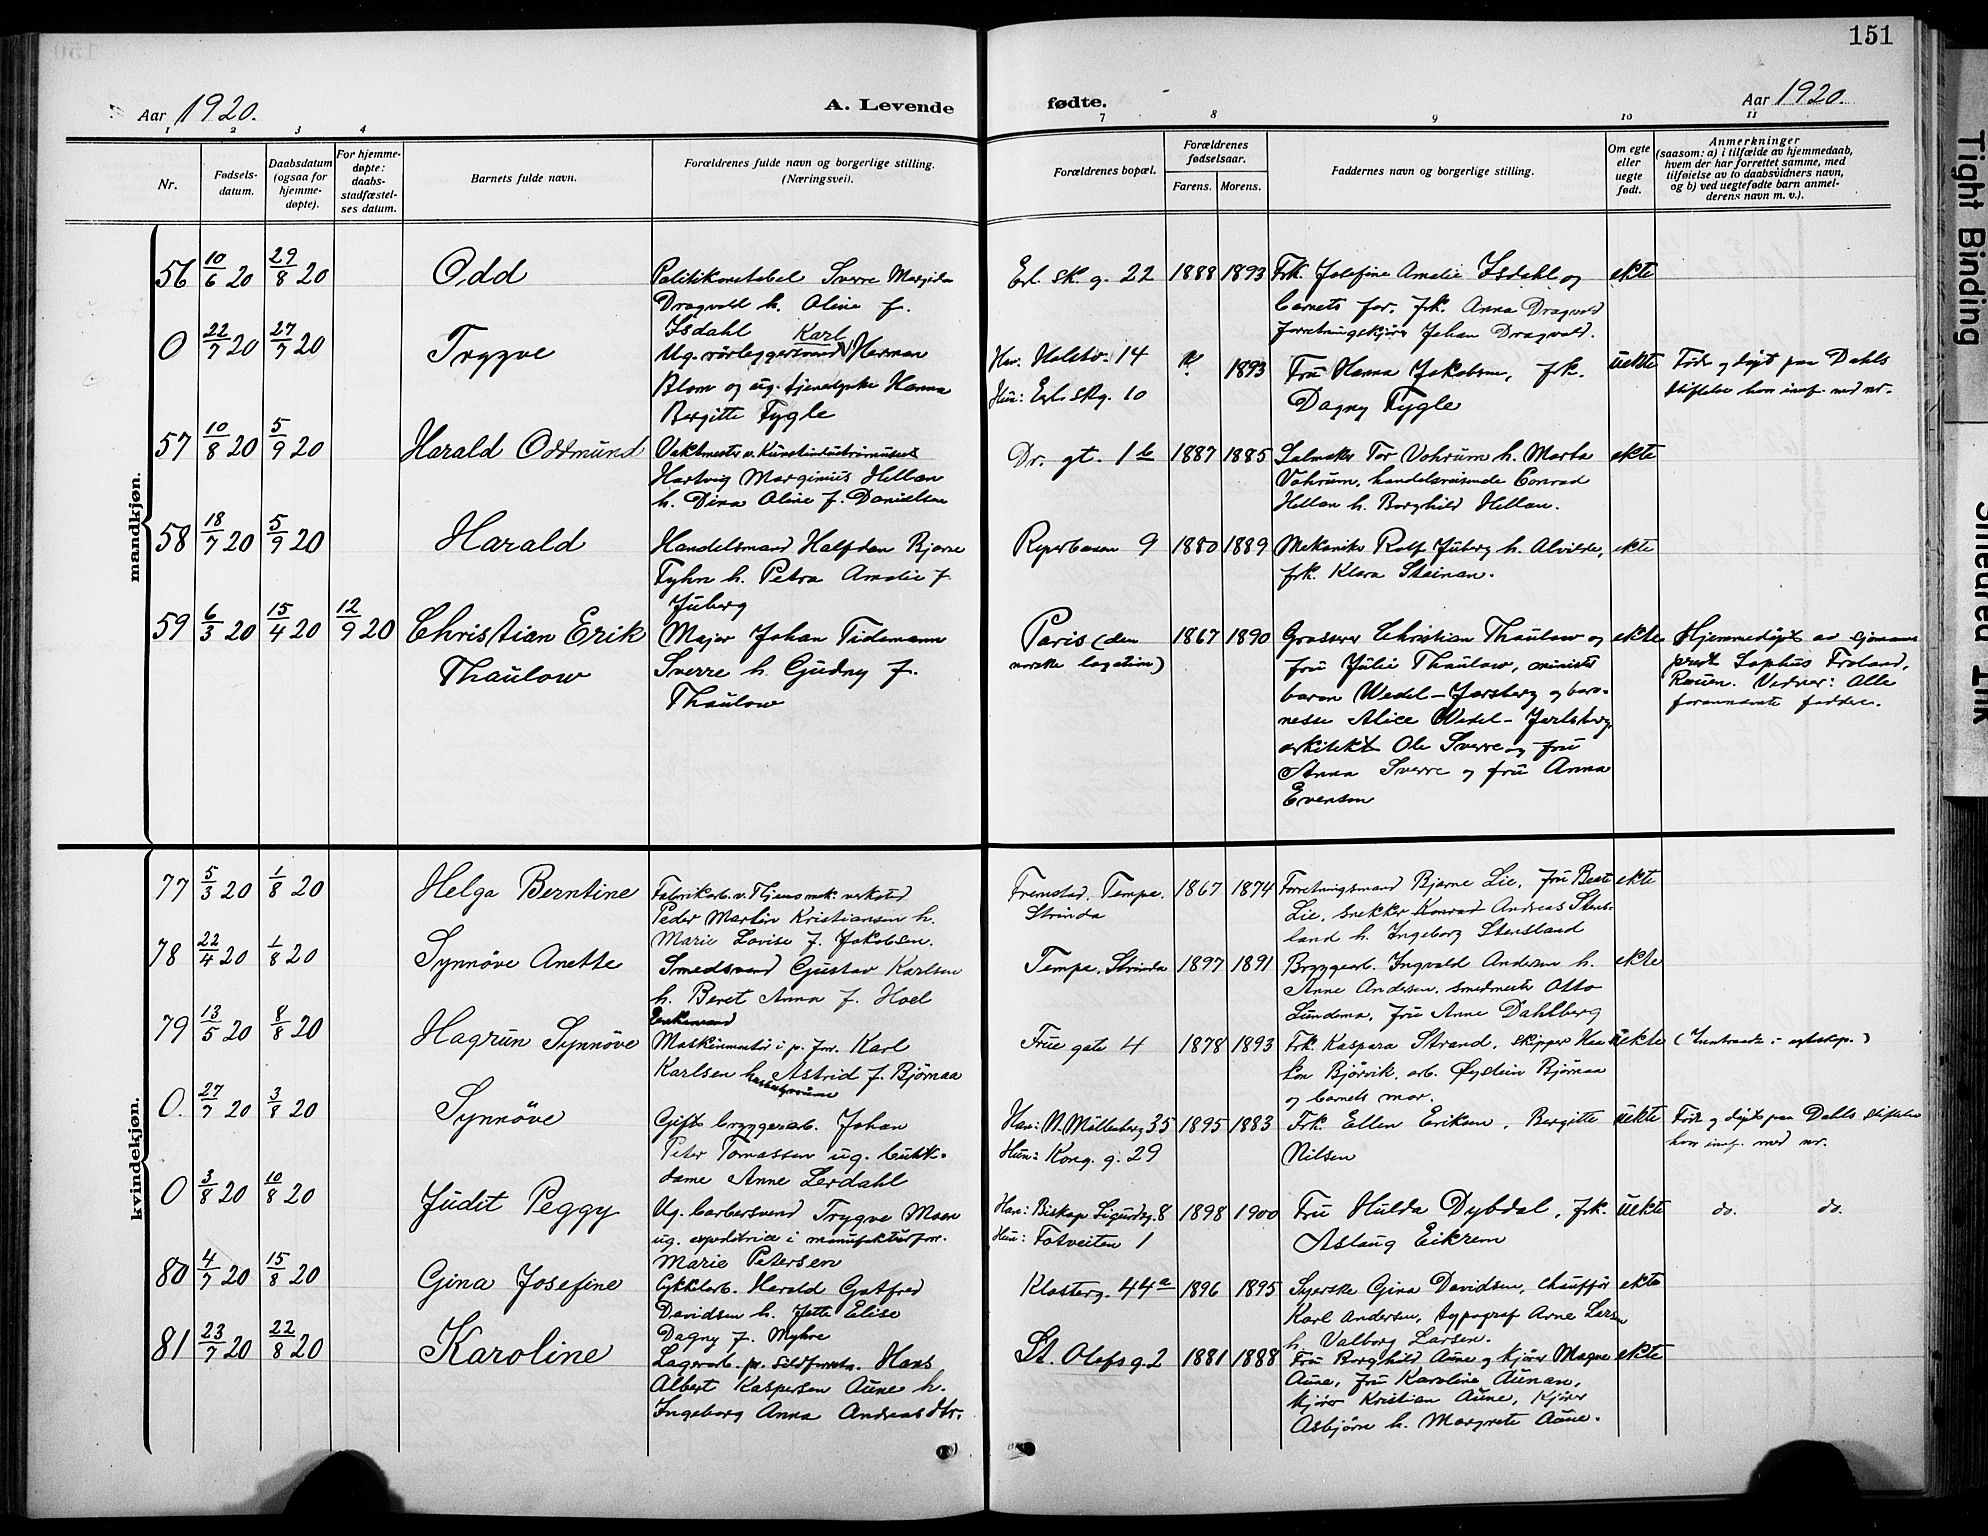 151
Aar 1920. A. Levende fødte. Aar 1920.
1 2 3 4 7 8 9 10 11
Nr.
Fødsels-
datum.
Daabsdatum
(ogsaa for
hjemme-
døpte).
For hjemme-
døpte:
daabs-
stadfæstel-
ses datum.
Barnets fulde navn.
Forældrenes fulde navn og borgerlige stilling.
(Næringsvei).
Forældrenes bopæl.
Forældrenes
fødselsaar.
Farens. Morens.
Faddernes navn og borgerlige stilling.
Om egte
eller
uegte
født.
Anmerkninger
(saasom: a) i tilfælde av hjemmedaab,
hvem der har forrettet samme, med
tilføielse av to daabsvidners navn,
og b) ved uegtefødte barn anmel-
derens navn m. v.).
mandkjøn.
56 10/6 20 29/8 20 Odd
Politikonstabel Sverre
Dragvold h. Oline f.
Isdahl
Erl. sk. g. 22 1888 1893
Frk. Josefine Amalie Isdahl og
barnets far, frk. Anna Dragvold
Johan Dragvold.
ekte
0 22/7 20 27/7 20 Trygve
Karl
Ug. rørleggersvend Herman
Blom og ug. tjenestepike Hanna
Bergitte Tygle
Han: 14
Hun: Erl. skg. 10
1893
Fru Hanna Jakobsen, frk.
Dagny Tygle
uekte
Født og døpt paa Dahls
stiftelse hvor innf. med nr.
57 10/8 20 5/9 20 Harald Oddmund
Vaktmester v. Kunstindustrimuseet
Hartvig Marginius Hellan
h. Dina Oline f. Danielsen
Dr. gt. 1b 1887 1885
Salmaker Tor Vohrum h. Marta
Vohrum, handelsreisende Conrad
Hellan h. Borghild Hellan.
ekte
58 18/7 20 5/9 20 Harald
Handelsmand Halfdan Bjarne
Tyhn h. Petra Amalie f.
Juberg
Reperbanen 9 1880 1889
Mekaniker Rolf Juberg h. Alvilde,
frk. Klara Steinan.
ekte
59 6/3 20 15/4 20 12/9 20 Christian Erik
Thaulow
Major Johan Tidemann
Sverre h. Gudny f.
Thaulow
Paris (den
norske legation)
1867 1890
Grosserer Christian Thaulow og
fru Julie Thaulow, minister
baron Wedel-Jarlsberg og baro-
nesse Alice Wedel-Jarlsberg
arkitekt Ole Sverre og fru
Anna Sverre og fru Anna
Evensen
ekte
Hjemmedøpt av sjømanns
prest Sophus Froland,
Rouen. Vidner: Alle
forannevnte faddere.
kvindekjøn.
77 5/3 20 1/8 20 Helga Berntine
Fabrikarb. v. mek. verksted
Peder Martin Kristiansen h.
Marie Lovise f. Jakobsen.
Fremstad, Tempe.
Strinda
1867 1874
Forretningsmand Bjarne Lie, fru Berte
Lie, snekker Konrad Andreas Stens-
land h. Ingeborg Stensland
ekte
78 22/4 20 1/8 20 Synnöve Anette
Smedsvend Gustav Karlsen
h. Beret Anna f. Hoel
Tempe, Strinda 1897 1891
Bryggearb. Ingvald Andersen h.
Anne Andersen, smedmester Otto
Lundemo, fru Anne Dahlberg
ekte
79 13/5 20 8/8 20 Hagrun Synnöve
Enkemand
Maskinmontør i p. forr. Karl
Karlsen h. Astrid f. Bjørnaa
Frue gate 4 1878 1893
Frk. Kaspara Strand, skipper Haa
kon Bjørvik, arb. Øystein Bjørnaa
og barnets mor.
uekte
(Inntraadt i egteskap.)
0. 27/7 20 3/8 20 Synnöve
Gift bryggerarb. Johan
Peter Tomassen ug. butik-
dame Anne Lerdahl
Han: N. Möllenberg 35
Hun: Kong. g. 29
1895 1883
Frk. Ellen Eriksen, Bergitte
Nilsen
uekte
Født og døpt paa Dahls stiftelse
hvor innf. med nr.
0 3/8 20 10/8 20 Judit Peggy
Ug. barbersvend Trygve Moen
ug. expeditrice i manufakturforr.
Marie Petersen
Han: Biskop Sigurdsg. 8
Hun: Totveiten 1
1898 1900
Fru Hulda Dybdal, frk.
Aslaug Eikrem
uekte
do. do.
80 4/7 20 15/8 20 Gina Josefine
Cykklarb. Harald Gotfred
Davidsen h. Jette Elise
Dagny f. Myhre
Klosterg. 44a 1896 1895
Syerske Gina Davidsen, chauffør
Karl Andersen, typograf Arne Larsen
h. Valborg Larsen.
ekte
81 23/7 20 22/8 20 Karoline
Lagerarb. p. sildforretn. Hans
Albert Kaspersen Aune h.
Ingeborg Anna Andreasdtr.
St. Olafs g. 2 1881 1888
Fru Borghild Aune og kjører Magne
Aune, fru Karoline Aunan,
kjører Kristian Aune, kjører
Asbjørn h. Margrete Aune.
ekte
Tight Binding
Smeared Ink